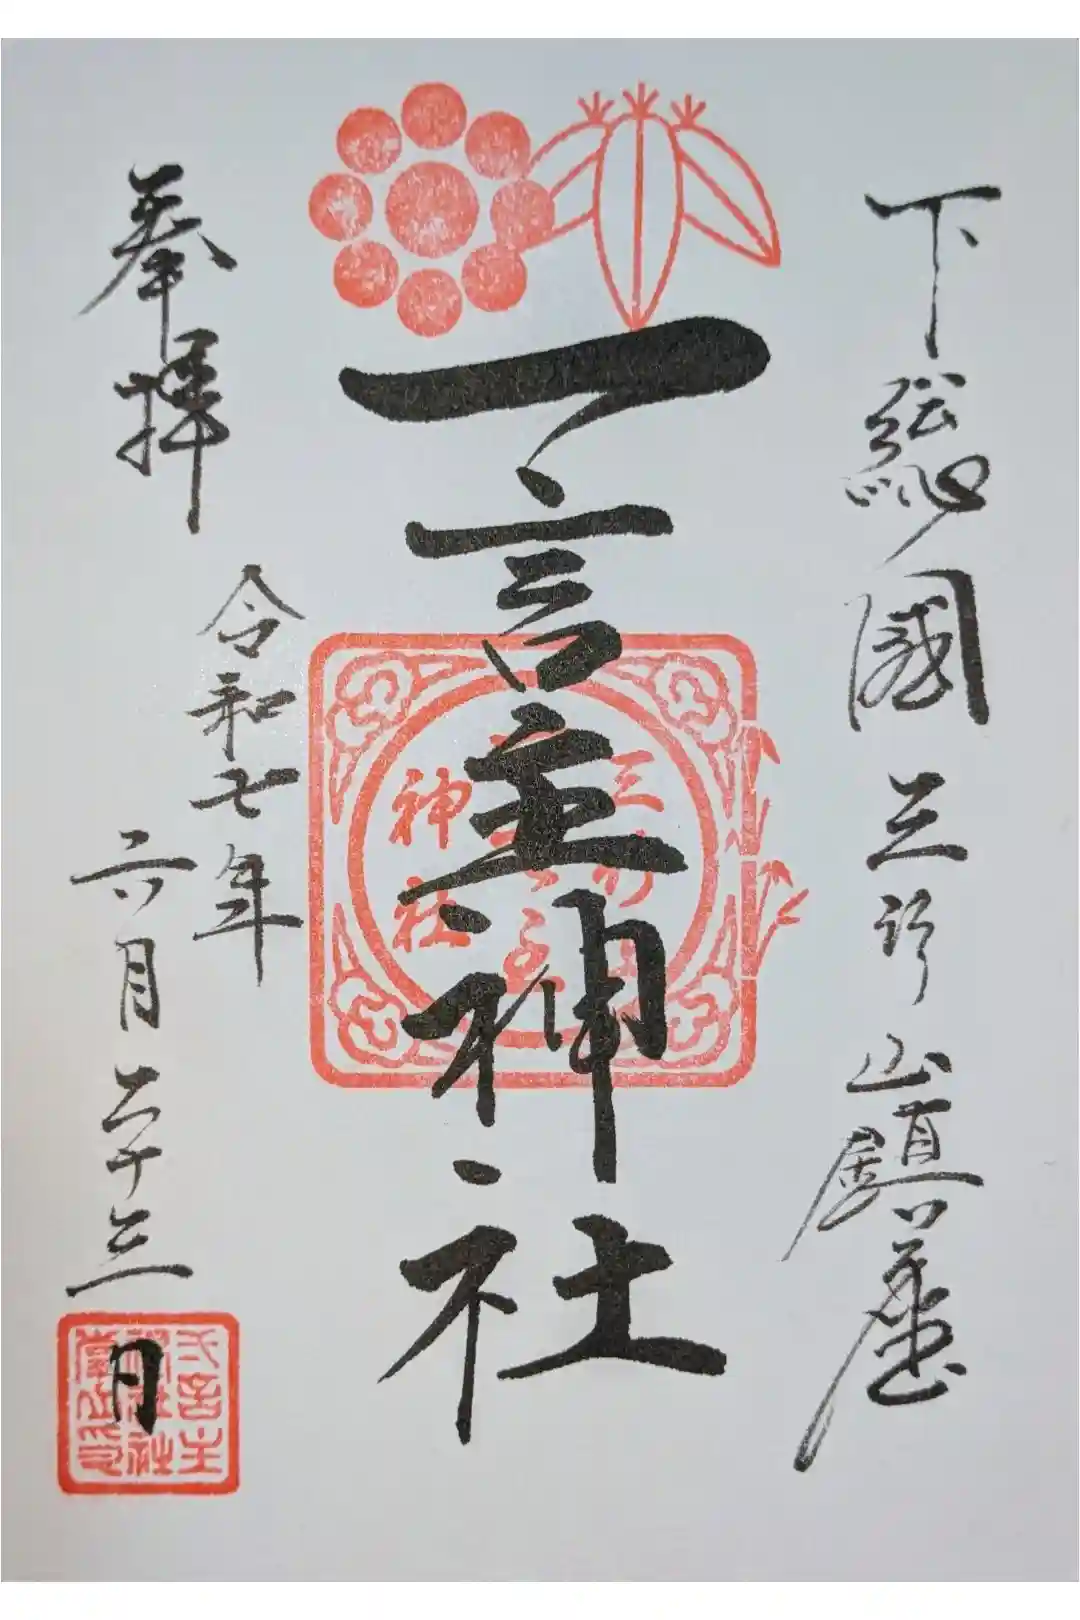 下総國三竹山鎮座
一言主神社
三竹山
一言主
神社
奉拝
令和七年
六月二十三日
弌言主
神社社
掌之印